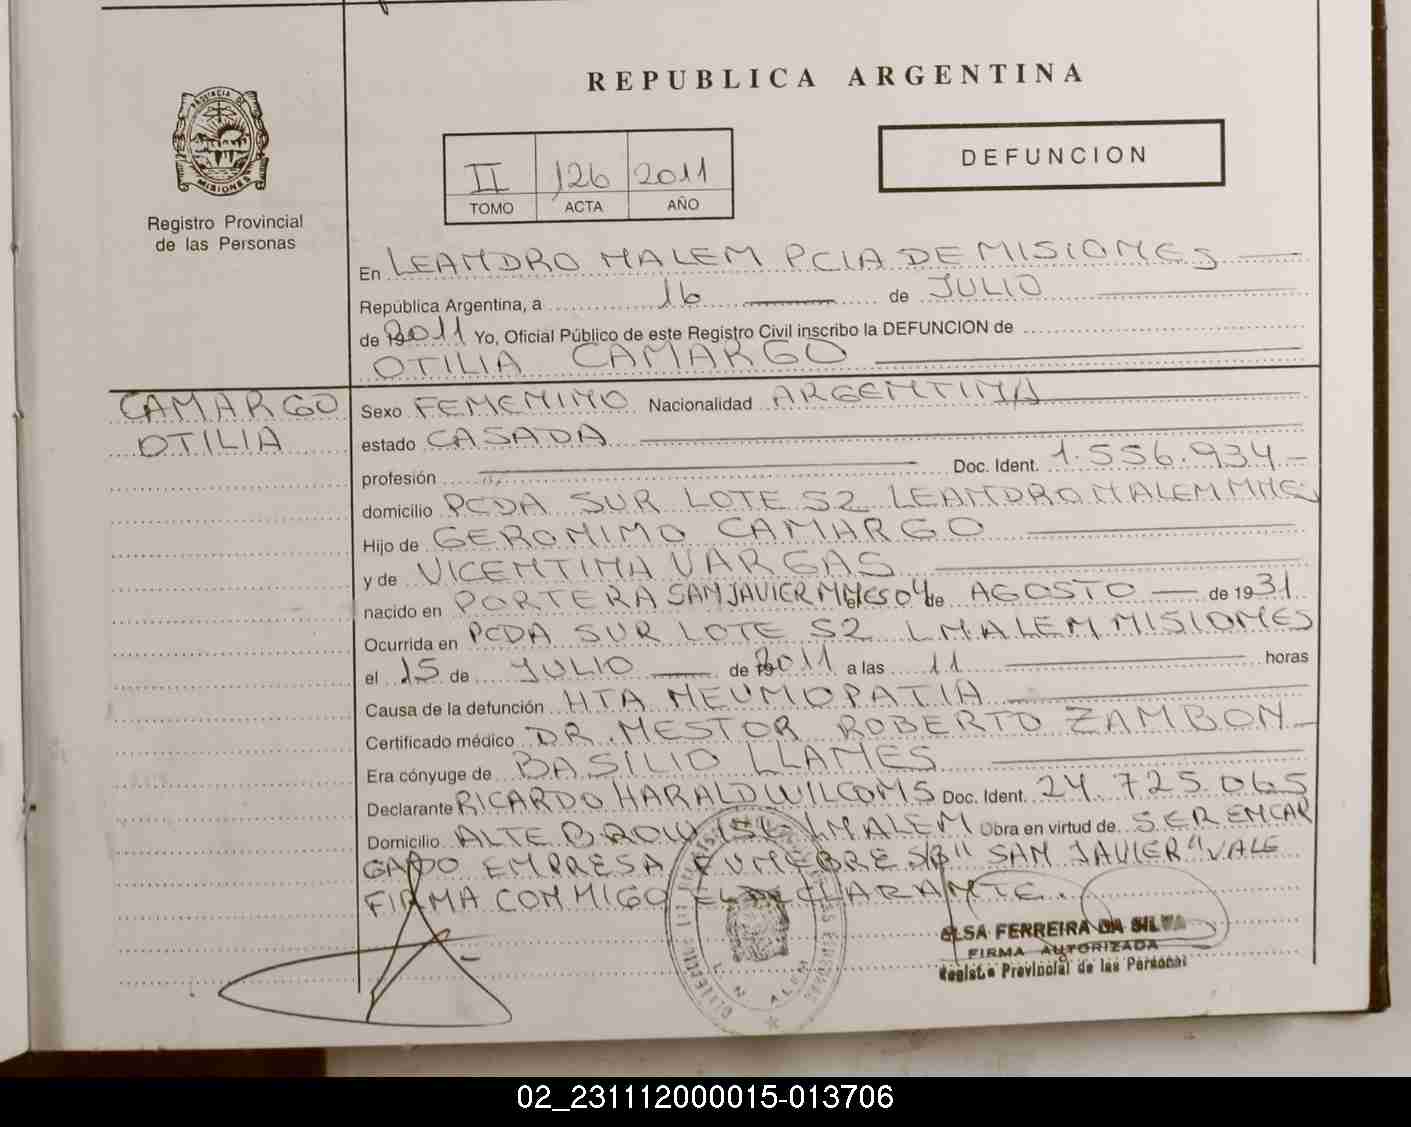 REPUBLICA ARGENTINA
PROVINCIA DE
MISIONES
Registro Provincial
de las Personas
II 126 2011
TOMO ACTA AÑO
DEFUNCION
En LEANDRO N ALEM PCIA DE MISIONES
República Argentina, a 16 de JULIO
de 2011 Yo, Oficial Público de este Registro Civil inscribo la DEFUNCION de
OTILIA CAMARGO
CAMARGO
OTILIA
Sexo FEMENINO Nacionalidad ARGENTINA
estado CASADA
profesión Doc. Ident. 1.556.934
domicilio PCDA SUR LOTE 52 LEANDRO N ALEM MNES
Hijo de GERONIMO CAMARGO
y de VICENTINA VARGAS
nacido en PORTERA SAN JAVIER MNES 04 de AGOSTO de 1931
Ocurrida en PCDA SUR LOTE 52 L N ALEM MISIONES
el 15 de JULIO de 2011 a las 11 horas
Causa de la defunción HTA NEUMOPATIA
Certificado médico DR. NESTOR ROBERTO ZAMBON
Era cónyuge de BASILIO LLANES
Declarante RICARDO HARALD WILCOMS Doc. Ident. 24.725.065
Domicilio ALTE BROW L N ALEM Obra en virtud de SER ENCAR
GADO EMPRESA FUNEBRE S/B "SAN JAVIER" VALE
FIRMA CONMIGO EL DECLARANTE.
L N ALEM
ELSA FERREIRA DA SILVA
FIRMA AUTORIZADA
Registro Provincial de las Personas
02_231112000015-013706